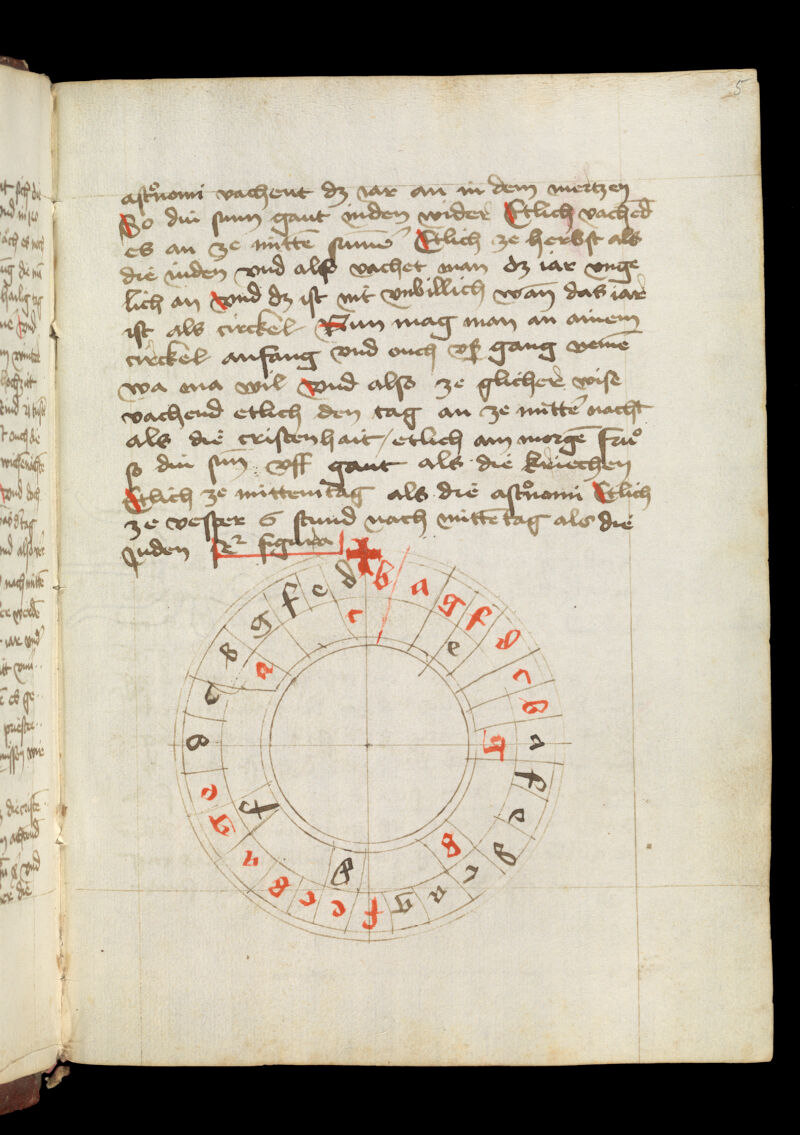 5
astronomi vachent dz iar an in dem mertzen
So die sunn gaut inden wider Etlich vached
es an ze mitte sumer Etlich ze herbst als
die iuden vnd also vachet man dz iar vnge
lich an vnd dz ist nit vnbillich wan das iar
ist als circkel Nun mag man an ainem
circkel anfang vnd ouch vß gang nemē
wa ma wil vnd also ze glicher wise
vachend etlich den tag an ze mitte nacht
als die cristenhait / etlich am morgē fruͦ
so diu sun vff gaut als die kriechen
Etlich ze mittemtag als die astronomi Etlich
ze vesper 6 stund nach mittētag als die
Juden figura
b a g f d c b a f e d c a g f e c g a g e g d b g f e d
c e g g f a